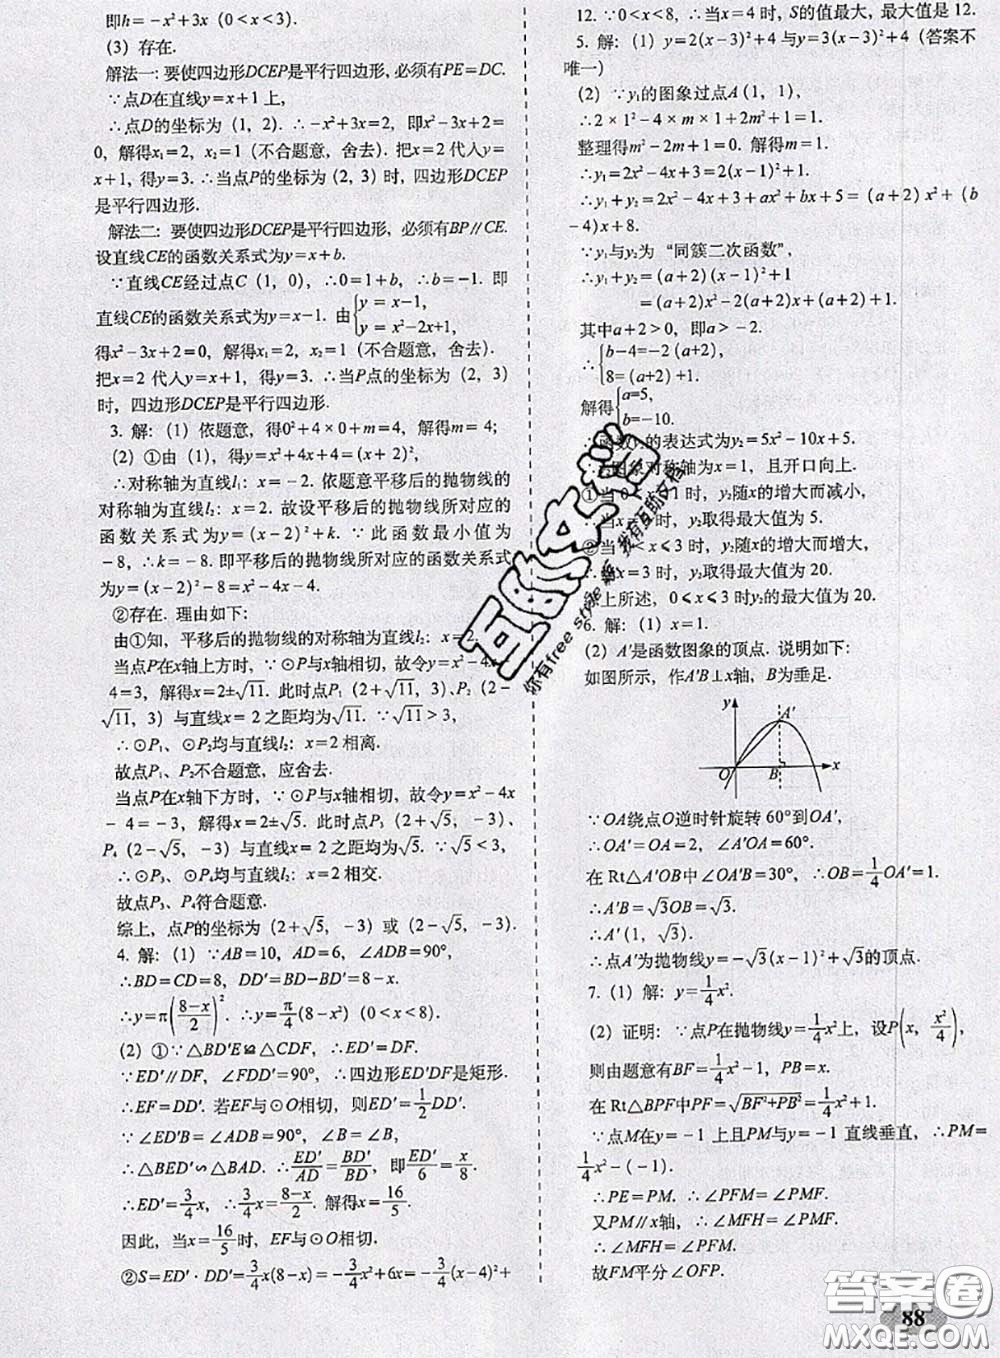 即h=-x²+3x(0<x<3).
(3) 存在.
解法一:要使四边形DCEP是平行四边形,必须有PE=DC.
∵点D在直线y=x+1上,
∴点D的坐标为(1, 2). ∴-x²+3x=2, 即x²-3x+2=
0, 解得x₁=2, x₂=1(不合题意,舍去). 把x=2代入y=
x+1, 得y=3. ∴当点P的坐标为(2, 3)时, 四边形DCEP
是平行四边形.
解法二: 要使四边形DCEP是平行四边形, 必须有BP∥CE.
设直线CE的函数关系式为y=x+b.
∵直线CE经过点C(1, 0), ∴0=1+b, ∴b=-1. 即
直线CE的函数关系式为y=x-1. 由{y=x-1, y=x²-2x+1,
得x²-3x+2=0, 解得x₁=2, x₂=1(不合题意, 舍去).
把x=2代入y=x+1, 得y=3. ∴当P点的坐标为(2, 3)
时, 四边形DCEP是平行四边形.
3. 解: (1) 依题意, 得0²+4×0+m=4, 解得m=4;
(2) ①由(1), 得y=x²+4x+4=(x+2)²,
∴对称轴为直线l₁: x=-2. 依题意平移后的抛物线的
对称轴为直线l₂: x=2. 故设平移后的抛物线所对应的
函数关系式为y=(x-2)²+k. ∵此函数最小值为
-8, ∴k=-8. 即平移后的抛物线所对应的函数关系式
为y=(x-2)²-8=x²-4x-4.
②存在. 理由如下:
由①知, 平移后的抛物线的对称轴为直线l₂: x=2
当点P在x轴上方时, ∵⊙P与x轴相切, 故令y=x²-4x
4=3, 解得x=2±√11. 此时点P₁(2+√11, 3)、P₂(2-
√11, 3)与直线x=2之距均为√11. ∵√11>3,
∴⊙P₁、⊙P₂均与直线l₂: x=2相离.
故点P₁、P₂不合题意, 应舍去.
当点P在x轴下方时, ∵⊙P与x轴相切, 故令y=x²-4x
-4=-3, 解得x=2±√5. 此时点P₃(2+√5, -3)、
P₄(2-√5, -3)与直线x=2之距均为√5. ∵√5<3,
∴⊙P₃、⊙P₄均与直线l₂: x=2相交.
故点P₃、P₄符合题意.
综上, 点P的坐标为(2+√5, -3)或(2-√5, -3).
4. 解: (1) ∵AB=10, AD=6, ∠ADB=90°,
∴BD=CD=8, DD′=BD-BD′=8-x.
∴y=π((8-x)/2)². ∴y=π/4(8-x²)(0<x<8).
(2) ①∵△BD′E≌△CDF, ∴ED′=DF.
∵ED′∥DF, ∠FDD′=90°, ∴四边形ED′DF是矩形.
∴EF=DD′. 若EF与⊙O相切, 则ED′=1/2DD′.
∵∠ED′B=∠ADB=90°, ∠B=∠B,
∴△BED′∽△BAD. ∴ED′/AD=BD′/BD, 即ED′/6=x/8.
∴ED′=3/4x, ∴3/4x=(8-x)/2. 解得x=16/5.
因此, 当x=16/5时, EF与⊙O相切.
②S=ED′·DD′=3/4x(8-x)=-3/4x²+6x=-3/4(x-4)²+
12. ∵0<x<8, ∴当x=4时, S的值最大, 最大值是12.
5. 解: (1) y=2(x-3)²+4与y=3(x-3)²+4(答案不
唯一)
(2) ∵y₁的图象过点A(1, 1),
∴2×1²-4×m×1+2m²+1=1.
整理得m²-2m+1=0. 解得m=1.
∴y₁=2x²-4x+3=2(x-1)²+1.
∴y₁+y₂=2x²-4x+3+ax²+bx+5=(a+2)x²+(b
-4)x+8.
∵y₁与y₂为“同簇二次函数”,
∴y₁+y₂=(a+2)(x-1)²+1
=(a+2)x²-2(a+2)x+(a+2)+1.
其中a+2>0, 即a>-2.
∴{b-4=-2(a+2), 8=(a+2)+1.
解得{a=5, b=-10.
∴函数 的表达式为y₂=5x²-10x+5.
图象对称轴为x=1, 且开口向上.
①当0 1时, y₂随x的增大而减小,
∴当x= 时, y₂取得最大值为5.
②当 <x≤3时, y₂随x的增大而增大,
∴ x=3时, y₂取得最大值为20.
上所述, 0≤x≤3时y₂的最大值为20.
6. 解: (1) x=1.
(2) A′是函数图象的顶点. 说明如下:
如图所示, 作A′B⊥x轴, B为垂足.
y A′ O B x
∵OA绕点O逆时针旋转60°到OA′,
∴OA′=OA=2, ∠A′OA=60°.
在Rt△A′OB中∠OA′B=30°, ∴OB=1/4OA′=1.
∴A′B=√3OB=√3.
∴A′(1, √3).
∴点A′为抛物线y=-√3(x-1)²+√3的顶点.
7. (1) 解: y=1/4x².
(2) 证明: ∵点P在抛物线y=1/4x²上, 设P(x, x²/4),
则由题意有BF=1/4x²-1, PB=x.
在Rt△BPF中PF=√(BF²+PB²)=1/4x²+1.
∵点M在y=-1上且PM与y=-1直线垂直, ∴PM=
1/4x²-(-1).
∴PE=PM. ∴∠PFM=∠PMF.
又PM∥x轴, ∴∠MFH=∠PMF.
∴∠MFH=∠PFM.
故FM平分∠OFP.
你有free style 我有互助文档
答案圈
MXQE.COM
88